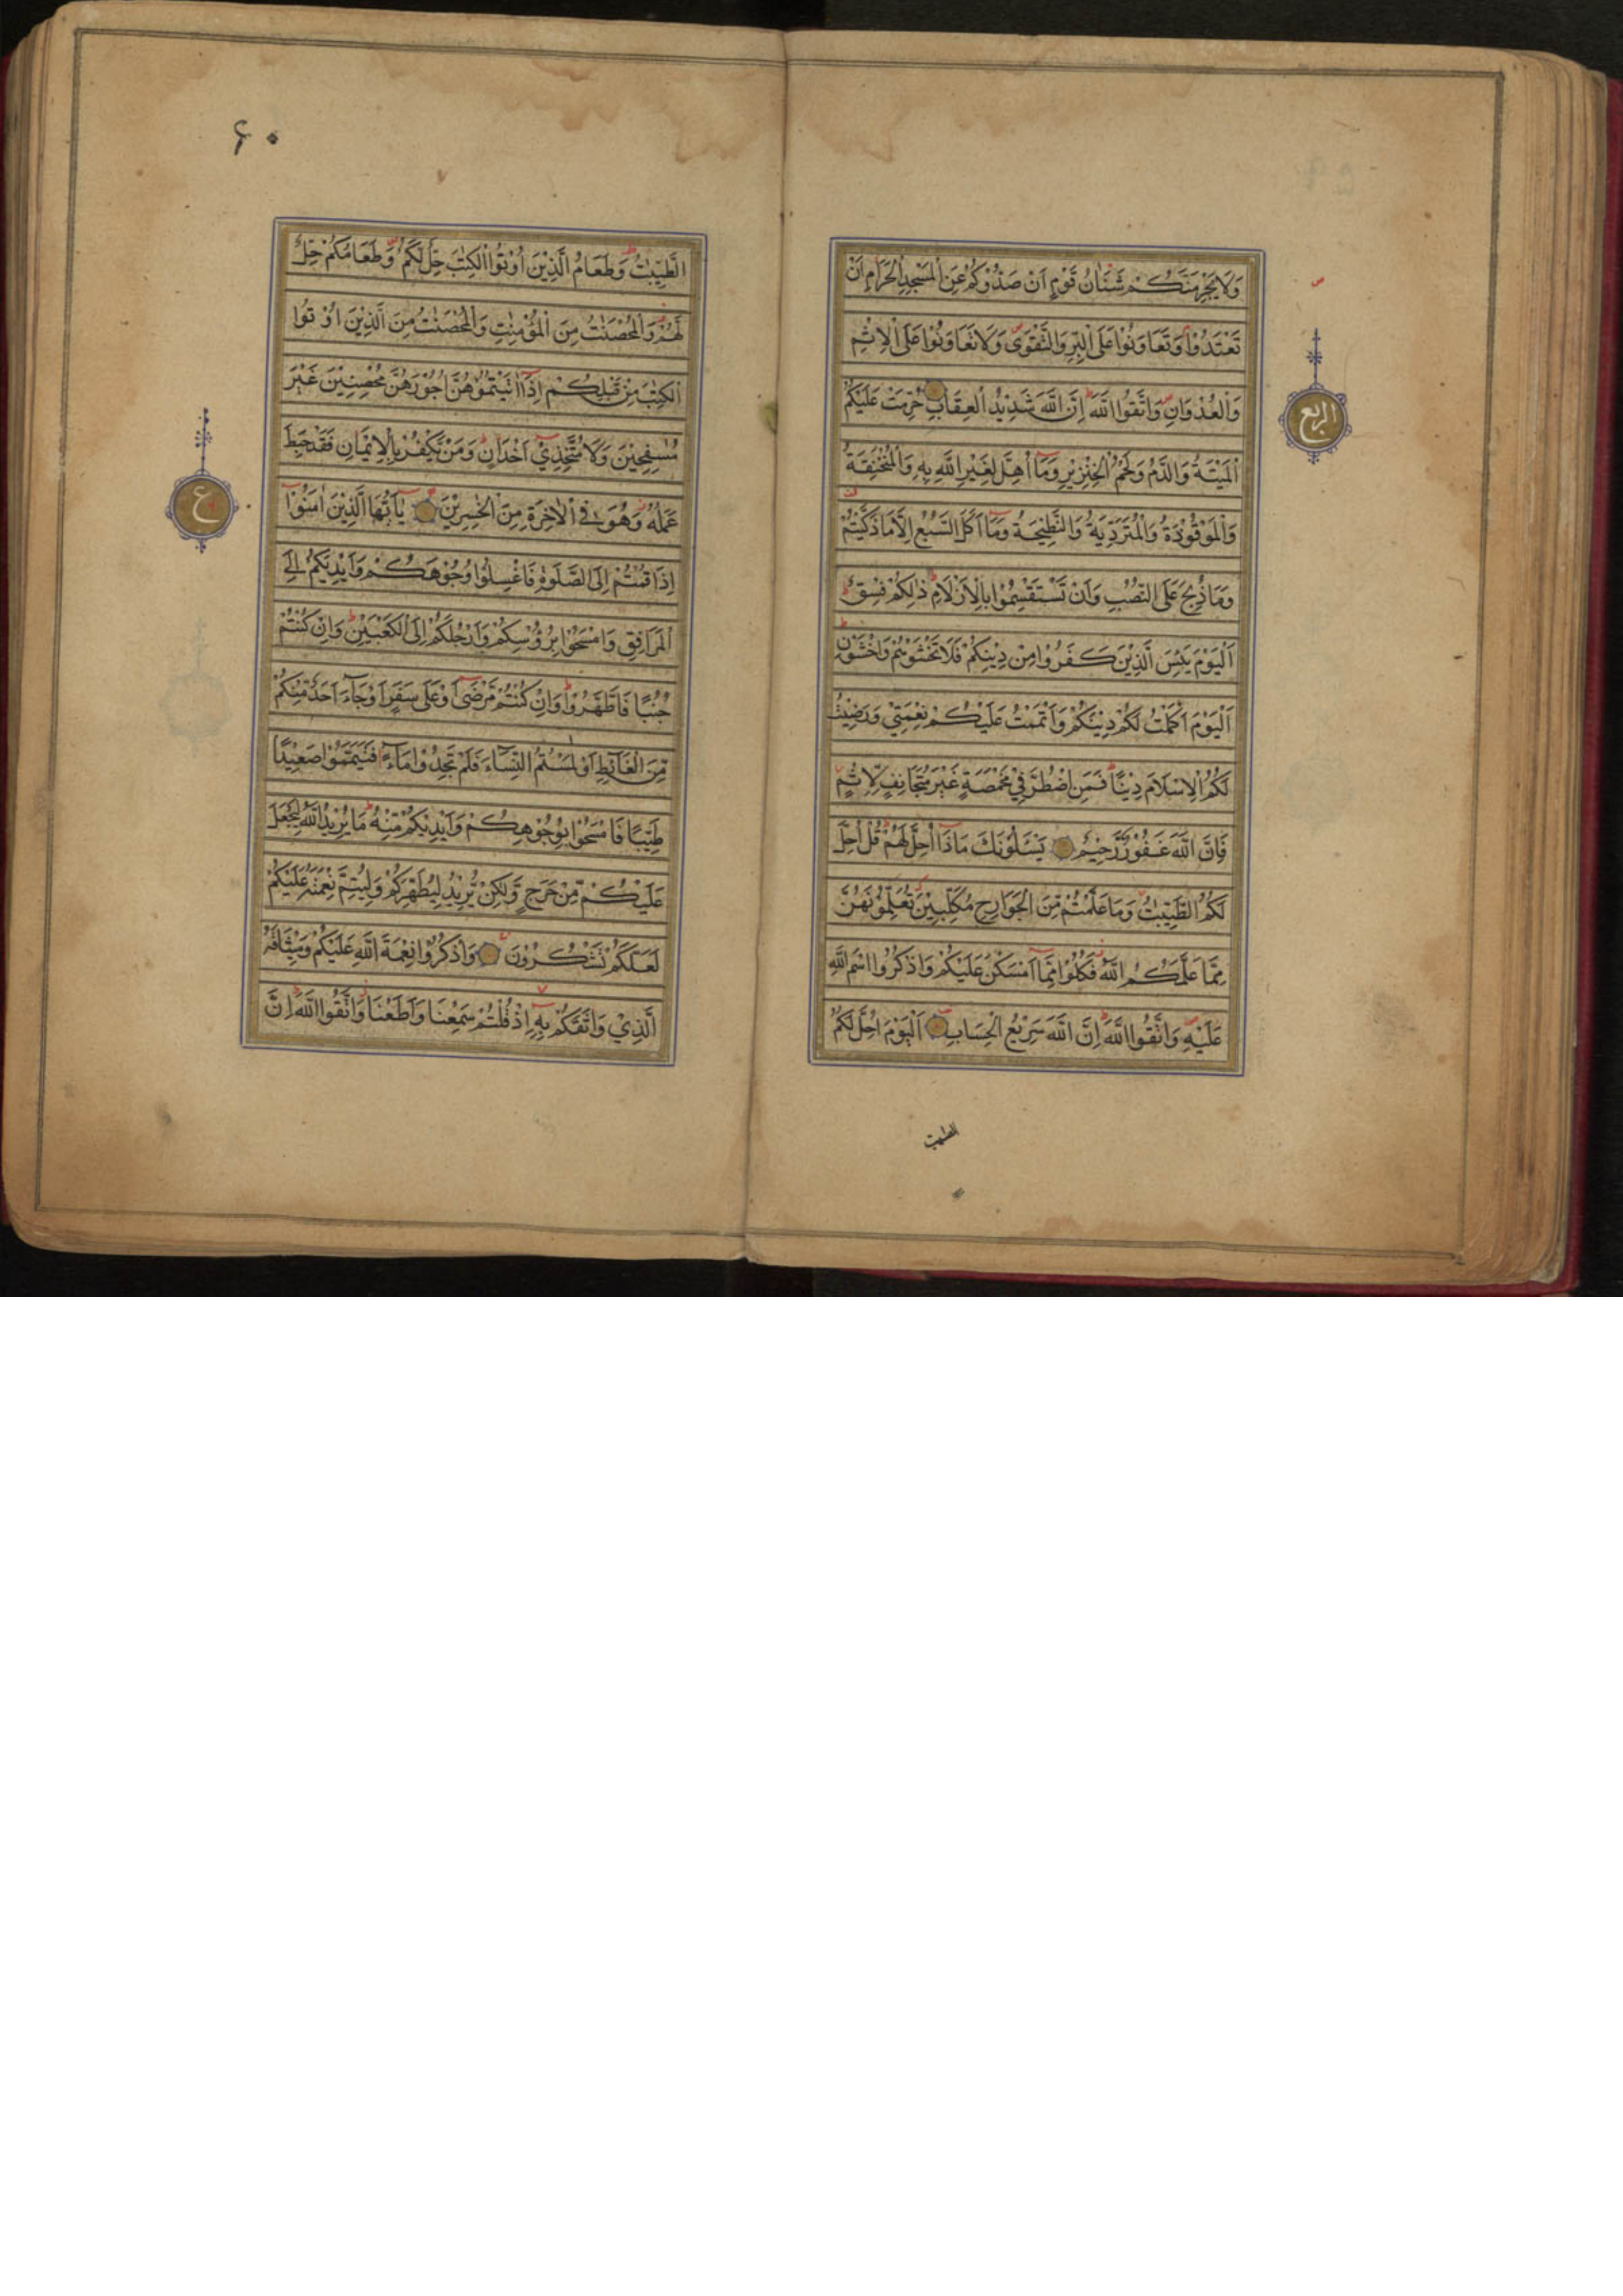 وَلَا يَجْرِمَنَّكُمْ شَنَاٰنُ قَوْمٍ اَنْ صَدُّوْكُمْ عَنِ الْمَسْجِدِ الْحَرَامِ اَنْ
تَعْتَدُوْا وَتَعَاوَنُوْا عَلَى الْبِرِّ وَالتَّقْوٰى وَلَا تَعَاوَنُوْا عَلَى الْاِثْمِ
وَالْعُدْوَانِ وَاتَّقُوا اللّٰهَ اِنَّ اللّٰهَ شَدِيْدُ الْعِقَابِ حُرِّمَتْ عَلَيْكُمُ
الْمَيْتَةُ وَالدَّمُ وَلَحْمُ الْخِنْزِيْرِ وَمَآ اُهِلَّ لِغَيْرِ اللّٰهِ بِهٖ وَالْمُنْخَنِقَةُ
وَالْمَوْقُوْذَةُ وَالْمُتَرَدِّيَةُ وَالنَّطِيْحَةُ وَمَآ اَكَلَ السَّبُعُ اِلَّا مَا ذَكَّيْتُمْ
وَمَا ذُبِحَ عَلَى النُّصُبِ وَاَنْ تَسْتَقْسِمُوْا بِالْاَزْلَامِ ذٰلِكُمْ فِسْقٌ
اَلْيَوْمَ يَئِسَ الَّذِيْنَ كَفَرُوْا مِنْ دِيْنِكُمْ فَلَا تَخْشَوْهُمْ وَاخْشَوْنِ
اَلْيَوْمَ اَكْمَلْتُ لَكُمْ دِيْنَكُمْ وَاَتْمَمْتُ عَلَيْكُمْ نِعْمَتِيْ وَرَضِيْتُ
لَكُمُ الْاِسْلَامَ دِيْنًا فَمَنِ اضْطُرَّ فِيْ مَخْمَصَةٍ غَيْرَ مُتَجَانِفٍ لِّاِثْمٍ
فَاِنَّ اللّٰهَ غَفُوْرٌ رَّحِيْمٌ يَسْئَلُوْنَكَ مَاذَآ اُحِلَّ لَهُمْ قُلْ اُحِلَّ
لَكُمُ الطَّيِّبٰتُ وَمَا عَلَّمْتُمْ مِّنَ الْجَوَارِحِ مُكَلِّبِيْنَ تُعَلِّمُوْنَهُنَّ
مِمَّا عَلَّمَكُمُ اللّٰهُ فَكُلُوْا مِمَّآ اَمْسَكْنَ عَلَيْكُمْ وَاذْكُرُوا اسْمَ اللّٰهِ
عَلَيْهِ وَاتَّقُوا اللّٰهَ اِنَّ اللّٰهَ سَرِيْعُ الْحِسَابِ اَلْيَوْمَ اُحِلَّ لَكُمُ
الربع
الطيبت
۶۰
الطَّيِّبٰتُ وَطَعَامُ الَّذِيْنَ اُوْتُوا الْكِتٰبَ حِلٌّ لَّكُمْ وَطَعَامُكُمْ حِلٌّ
لَّهُمْ وَالْمُحْصَنٰتُ مِنَ الْمُؤْمِنٰتِ وَالْمُحْصَنٰتُ مِنَ الَّذِيْنَ اُوْتُوا
الْكِتٰبَ مِنْ قَبْلِكُمْ اِذَآ اٰتَيْتُمُوْهُنَّ اُجُوْرَهُنَّ مُحْصِنِيْنَ غَيْرَ
مُسٰفِحِيْنَ وَلَا مُتَّخِذِيْٓ اَخْدَانٍ وَمَنْ يَّكْفُرْ بِالْاِيْمَانِ فَقَدْ حَبِطَ
عَمَلُهٗ وَهُوَ فِي الْاٰخِرَةِ مِنَ الْخٰسِرِيْنَ يٰٓاَيُّهَا الَّذِيْنَ اٰمَنُوْٓا
اِذَا قُمْتُمْ اِلَى الصَّلٰوةِ فَاغْسِلُوْا وُجُوْهَكُمْ وَاَيْدِيَكُمْ اِلَى
الْمَرَافِقِ وَامْسَحُوْا بِرُؤُسِكُمْ وَاَرْجُلَكُمْ اِلَى الْكَعْبَيْنِ وَاِنْ كُنْتُمْ
جُنُبًا فَاطَّهَّرُوْا وَاِنْ كُنْتُمْ مَّرْضٰٓى اَوْ عَلٰى سَفَرٍ اَوْ جَآءَ اَحَدٌ مِّنْكُمْ
مِّنَ الْغَآئِطِ اَوْ لٰمَسْتُمُ النِّسَآءَ فَلَمْ تَجِدُوْا مَآءً فَتَيَمَّمُوْا صَعِيْدًا
طَيِّبًا فَامْسَحُوْا بِوُجُوْهِكُمْ وَاَيْدِيْكُمْ مِّنْهُ مَا يُرِيْدُ اللّٰهُ لِيَجْعَلَ
عَلَيْكُمْ مِّنْ حَرَجٍ وَّلٰكِنْ يُّرِيْدُ لِيُطَهِّرَكُمْ وَلِيُتِمَّ نِعْمَتَهٗ عَلَيْكُمْ
لَعَلَّكُمْ تَشْكُرُوْنَ وَاذْكُرُوْا نِعْمَةَ اللّٰهِ عَلَيْكُمْ وَمِيْثَاقَهُ
الَّذِيْ وَاثَقَكُمْ بِهٖٓ اِذْ قُلْتُمْ سَمِعْنَا وَاَطَعْنَا وَاتَّقُوا اللّٰهَ اِنَّ
ع